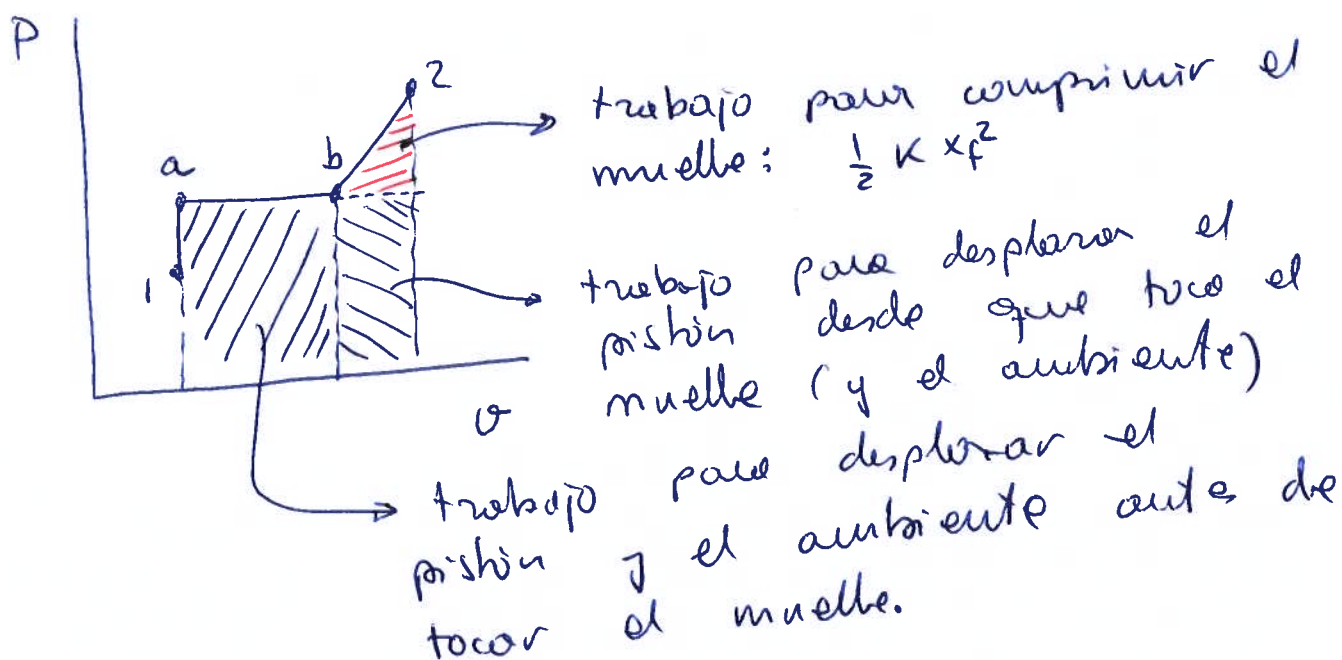 P
2
a
b
1
v
trabajo para comprimir el
muelle: 1/2 K xf²
trabajo para desplazar el
pistón desde que toca el
muelle (y el ambiente)
trabajo para desplazar el
pistón y el ambiente antes de
tocar el muelle.